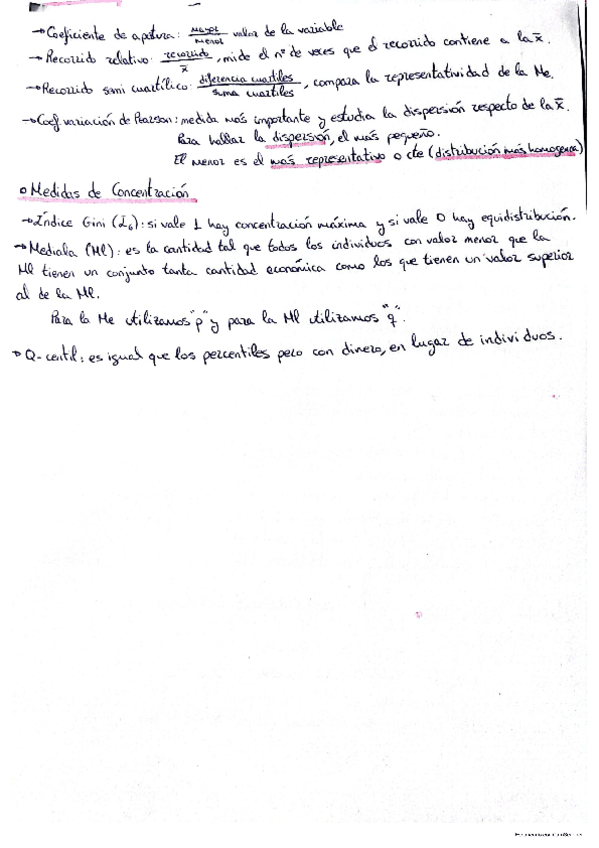 →Coeficiente de apertura: mayor/menor valor de la variable
→Recorrido relativo: recorrido/x̄, mide el nº de veces que el recorrido contiene a la x̄.
→Recorrido semi cuartílico: diferencia cuartiles/suma cuartiles, compara la representatividad de la Me.
→Coef variación de Pearson: medida más importante y estudia la dispersión respecto de la x̄.
Para hallar la dispersión, el más pequeño.
El menor es el más representativo o cte (distribución más homogenea)
o Medidas de Concentración
→Índice Gini (LG): si vale 1 hay concentración máxima y si vale 0 hay equidistribución.
→Mediala (Ml): es la cantidad tal que todos los individuos con valor menor que la
Ml tienen un conjunto tanta cantidad económica como los que tienen un valor superior
al de la Ml.
Para la Me utilizamos "p" y para la Ml utilizamos "q".
→ Q-centil: es igual que los percentiles pero con dinero, en lugar de individuos.